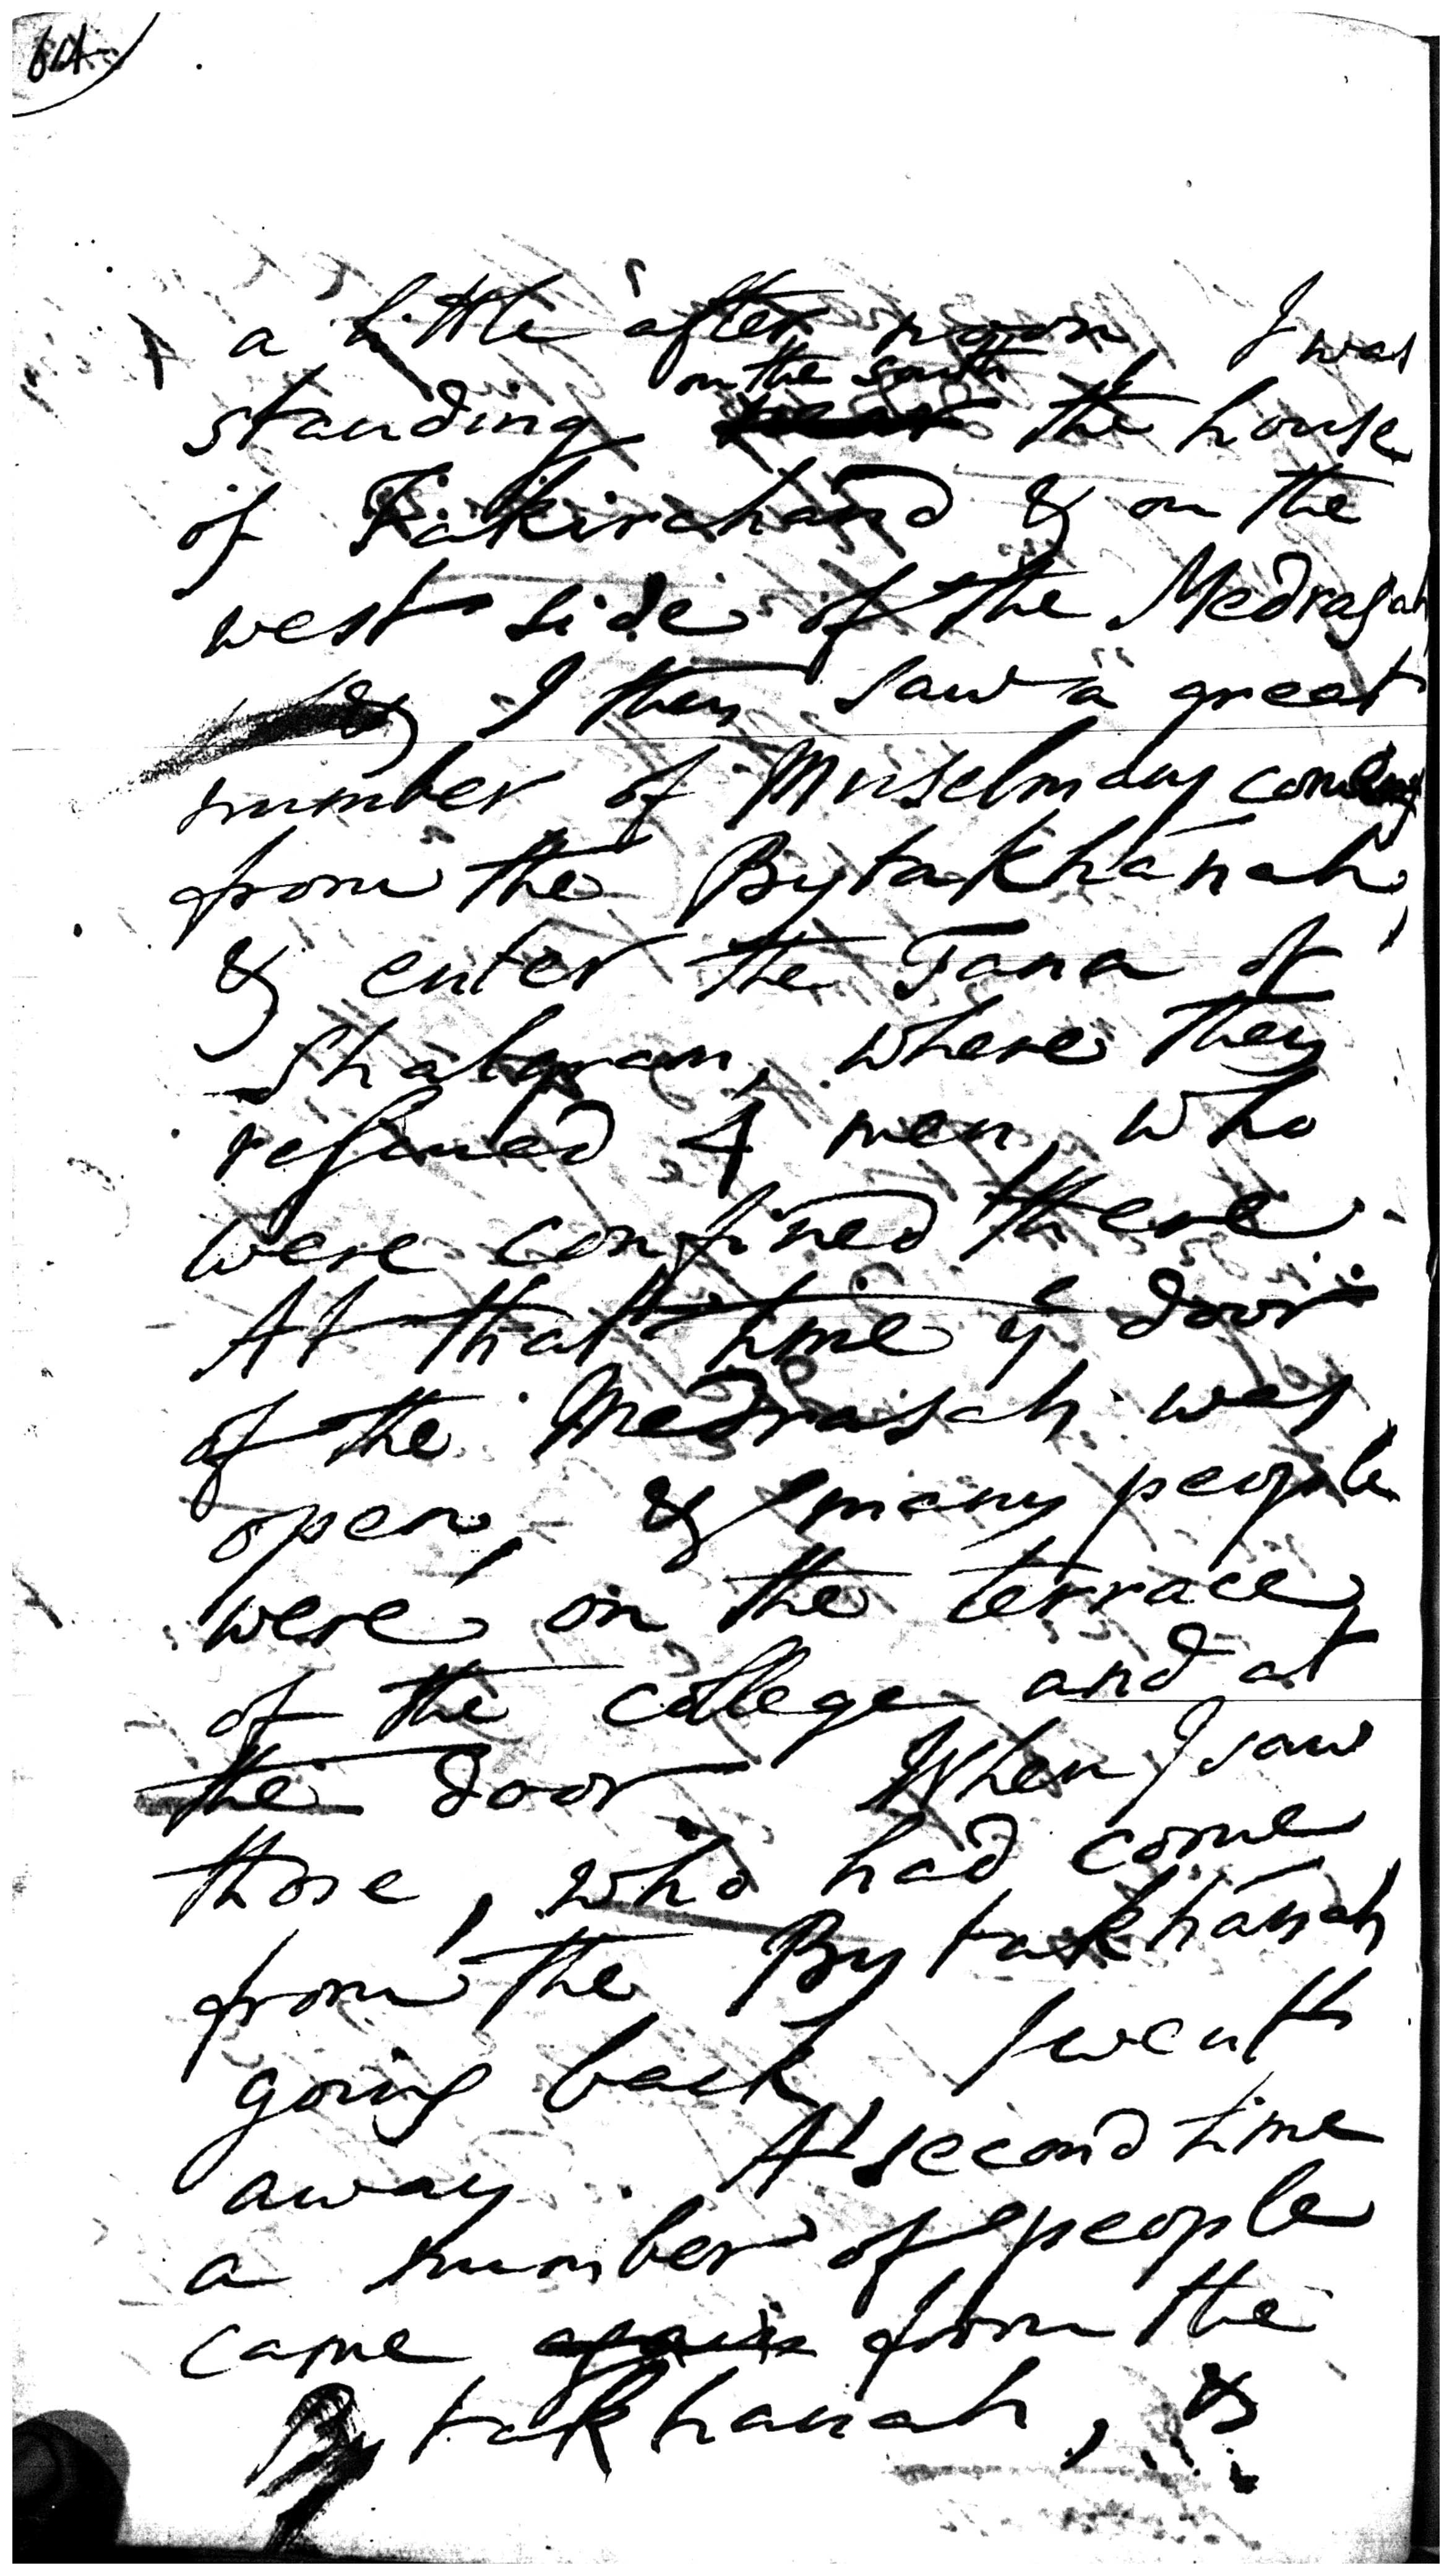 64
a little after noon I was
on the south
standing near the house
of Fakirchand & on the
west side of the Medrasah
& I then saw a great
number of Muselmans coming
from the Bytakhánah,
& enter the Tana of
Shalgram, where they
rescued 4 men, who
were confined there.
At that time ye door
of the Medrasah was
open, & many people
were on the terrace
of the college and at
the door. When I saw
those, who had come
from the Bytakhánah
going back, I went
away. At second time
a number of people
came again from the
Bytakhanah, &